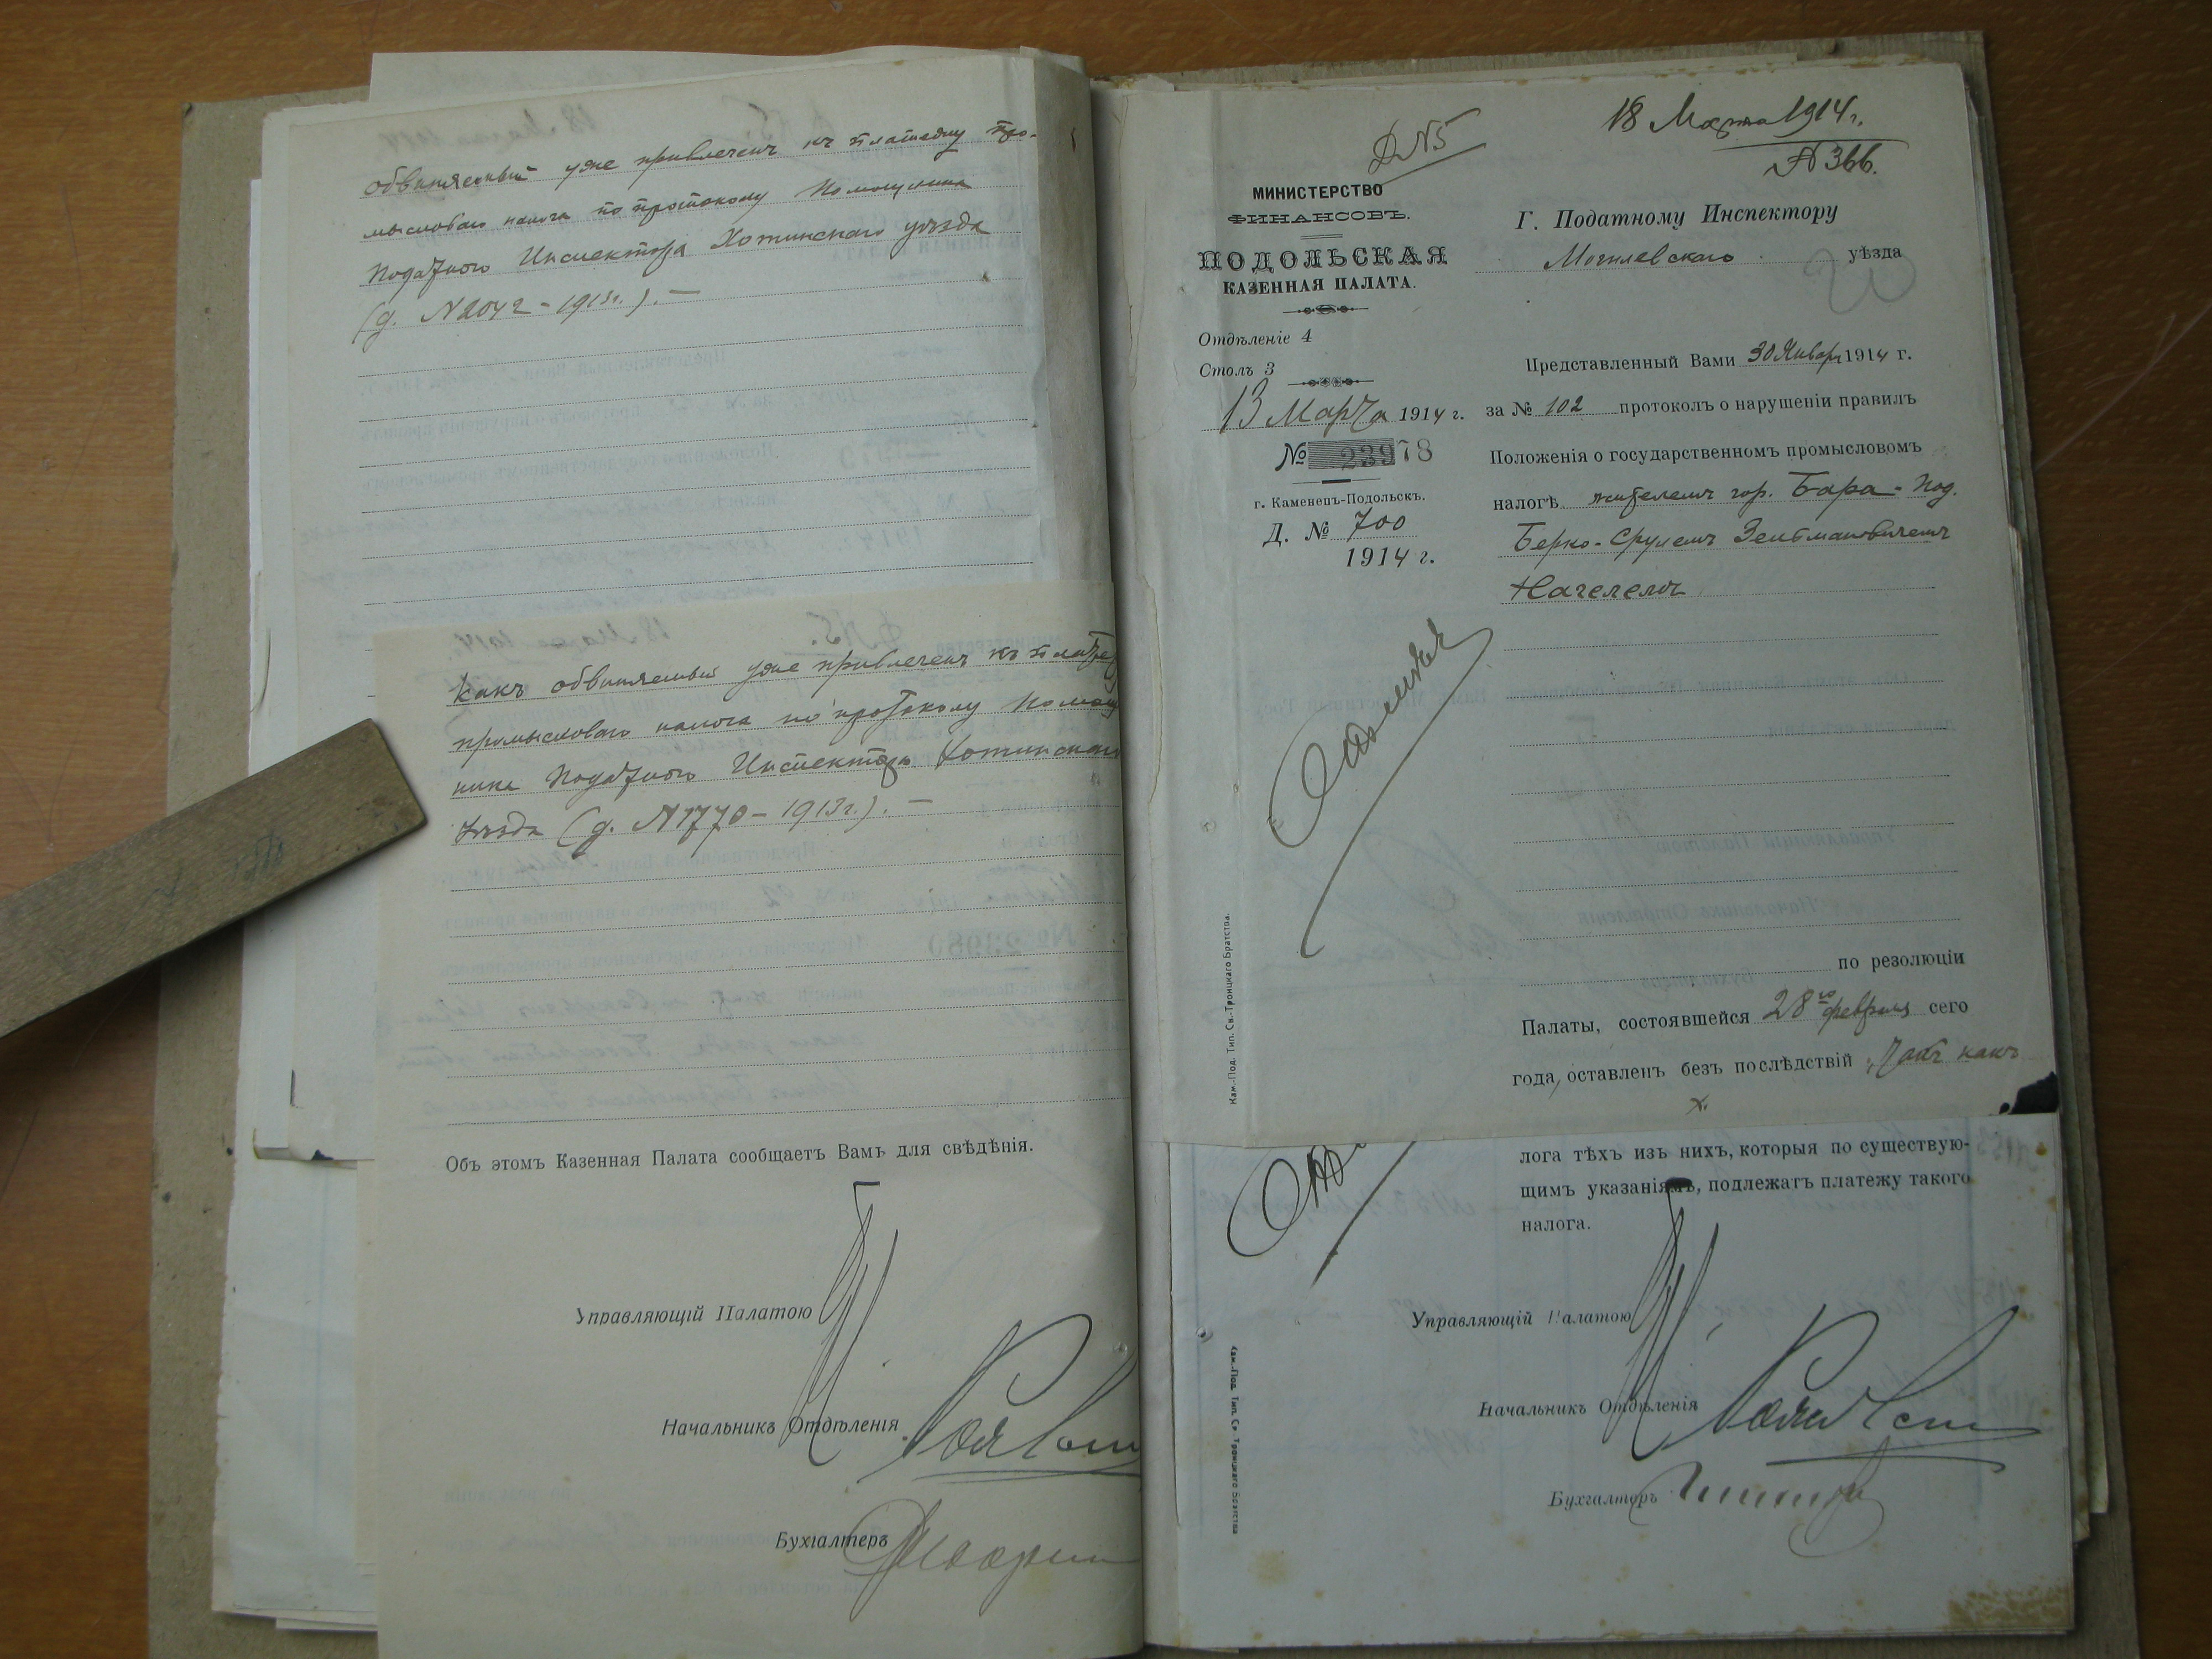 обвиняемый уже привлеченъ къ платежу про-
мысловаго налога по протоколу Помощника
Податного Инспектора Хотинскаго уѣзда
(д. N2042 - 1913г.). —
какъ обвиняемый уже привлеченъ къ платежу
промысловаго налога по протоколу Помощ
ника Податного Инспектора Хотинскаго
уѣзда (д. N1770 - 1913г.). —
Объ этомъ Казенная Палата сообщаетъ Вамъ для свѣдѣнія.
Управляющій Палатою
Начальникъ Отдѣленія
Бухгалтеръ
Д N5
18 Марта 1914 г.
N 366.
МИНИСТЕРСТВО
ФИНАНСОВЪ.
ПОДОЛЬСКАЯ
КАЗЕННАЯ ПАЛАТА.
Отдѣленіе 4
Столъ 3
13 Марта 1914 г.
№ 23978
г. Каменецъ-Подольскъ.
Д. № 700
1914 г.
Г. Податному Инспектору
Могилевскаго уѣзда
Представленный Вами 30 Января 1914 г.
за № 102 протоколъ о нарушеніи правилъ
Положенія о государственномъ промысловомъ
налогѣ жителемъ гор. Бара - Под.
Берко-Срулемъ Зейтмановичемъ
Нагелемъ
по резолюціи
Палаты, состоявшейся 28го февраля сего
года, оставленъ безъ послѣдствій, такъ какъ
Кам.-Под. Тип. Св.-Троицкаго Братства.
лога тѣхъ изъ нихъ, которыя по существую-
щимъ указаніямъ, подлежатъ платежу такого
налога.
Управляющій Палатою
Начальникъ Отдѣленія
Бухгалтеръ
Кам.-Под. Тип. Св. Троицкаго Братства